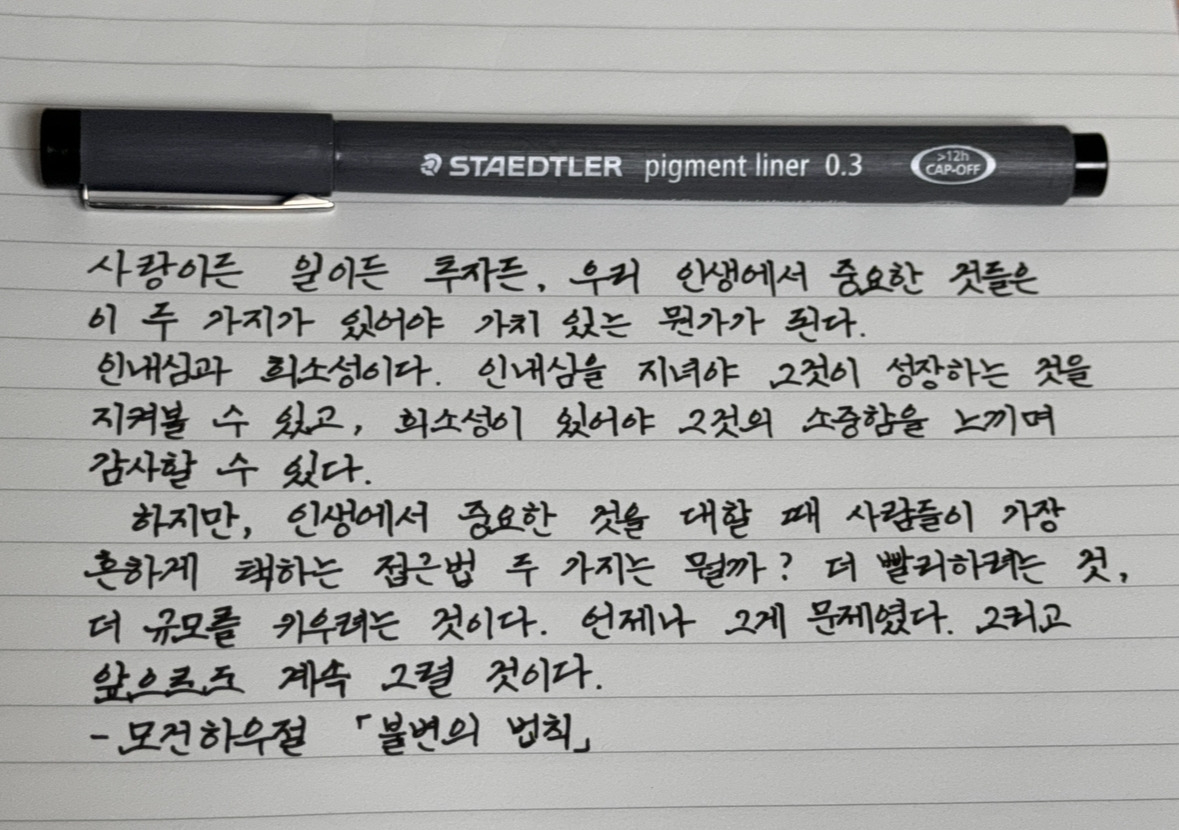 STAEDTLER pigment liner 0.3
>12h
CAP-OFF
사랑이든 일이든 투자든, 우리 인생에서 중요한 것들은
이 두 가지가 있어야 가치 있는 뭔가가 된다.
인내심과 희소성이다. 인내심을 지녀야 그것이 성장하는 것을
지켜볼 수 있고, 희소성이 있어야 그것의 소중함을 느끼며
감사할 수 있다.
하지만, 인생에서 중요한 것을 대할 때 사람들이 가장
흔하게 택하는 접근법 두 가지는 뭘까? 더 빨리하려는 것,
더 규모를 키우려는 것이다. 언제나 그게 문제였다. 그리고
앞으로도 계속 그럴 것이다.
- 모건하우절 「불변의 법칙」